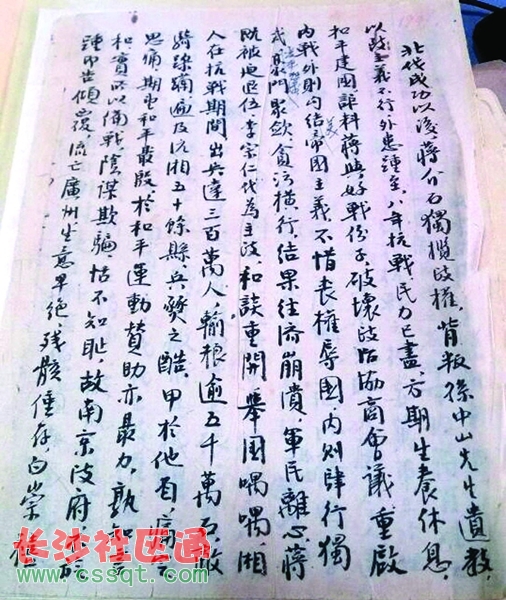 北伐成功以後,蔣介石獨攬政權,背叛孫中山先生遺教,
以致主義不行外患踵至,八年抗戰民力已盡,方期生養休息,
和平建國詎料蔣與好戰份子破壞政治協商會議重啟
內戰外則勾結美帝國主義不惜喪權辱國內則肆行獨
裁豪門聚歛貪污橫行,結果經濟崩潰,軍民離心,蔣
既被迫退位,李宗仁代為主政,和談重開,舉國喁喁,湘
人在抗戰期間,出兵達三百萬人,輸糧逾五千萬石,敵
騎蹂躪遍及沅湘五十餘縣,兵燹之酷,甲於他省,痛
思痛期望和平最殷於和平運動贊助亦最力,孰知言
和實所以備戰陰謀欺騙,恬不知恥,故南京政府不
踵即告傾覆,流亡廣州,生意早絕殘骸僅存,白崇禧
长沙社区通
www.cssqt.com